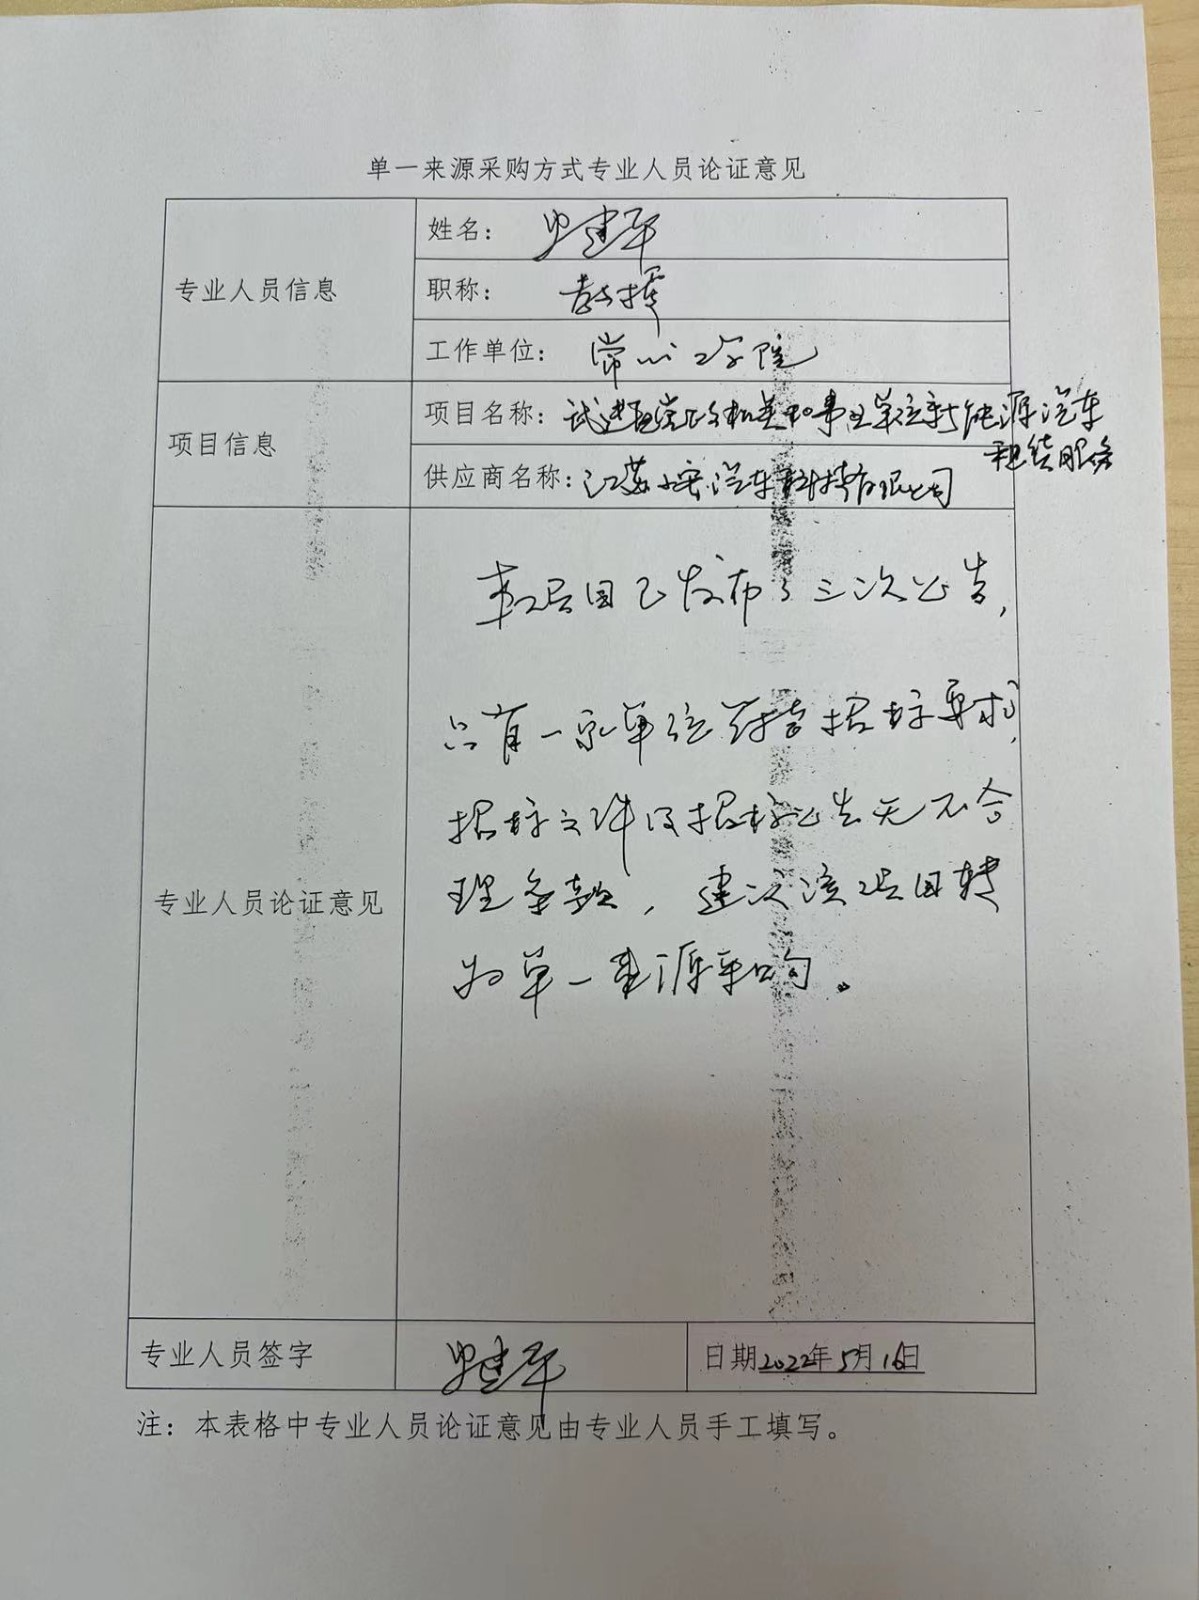 单一来源采购方式专业人员论证意见
专业人员信息
姓名: 史建军
职称: 教授
工作单位: 常州工学院
项目信息
项目名称: 机关和事业单位新能源汽车
租赁服务
供应商名称: 江苏 汽车科技有限公司
本项目已发布了三次公告,
只有一家单位符合招标要求,
专业人员论证意见
招标文件及招标公告无不合
理条款, 建议该项目转
为单一来源采购。
专业人员签字
史建军
日期2022年5月16日
注: 本表格中专业人员论证意见由专业人员手工填写。